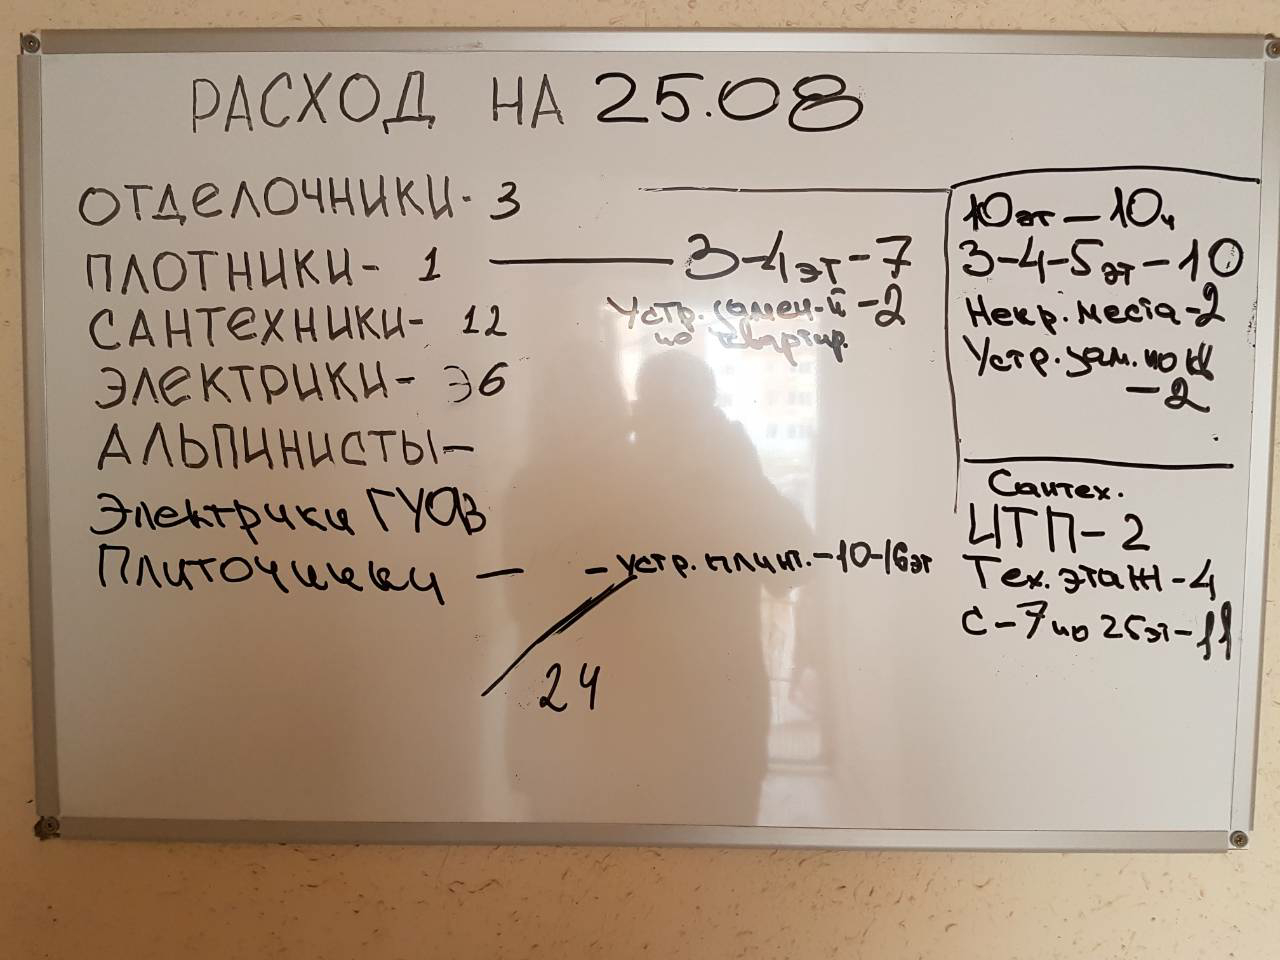 РАСХОД НА 25.08
ОТДЕЛОЧНИКИ- 3
ПЛОТНИКИ- 1 — 3-4эт-7
Устр. замен-й -2
по квартир.
САНТЕХНИКИ- 12
ЭЛЕКТРИКИ- Э6
АЛЬПИНИСТЫ-
Электрики ГУОВ
Плиточники — - устр. плинт.-10-16эт
24
10эт — 10ч
3-4-5эт-10
Некр. места-2
Устр. зам. по кв
-2
Сантех.
ЦТП-2
Тех. этаж-4
С-7 по 25эт-11